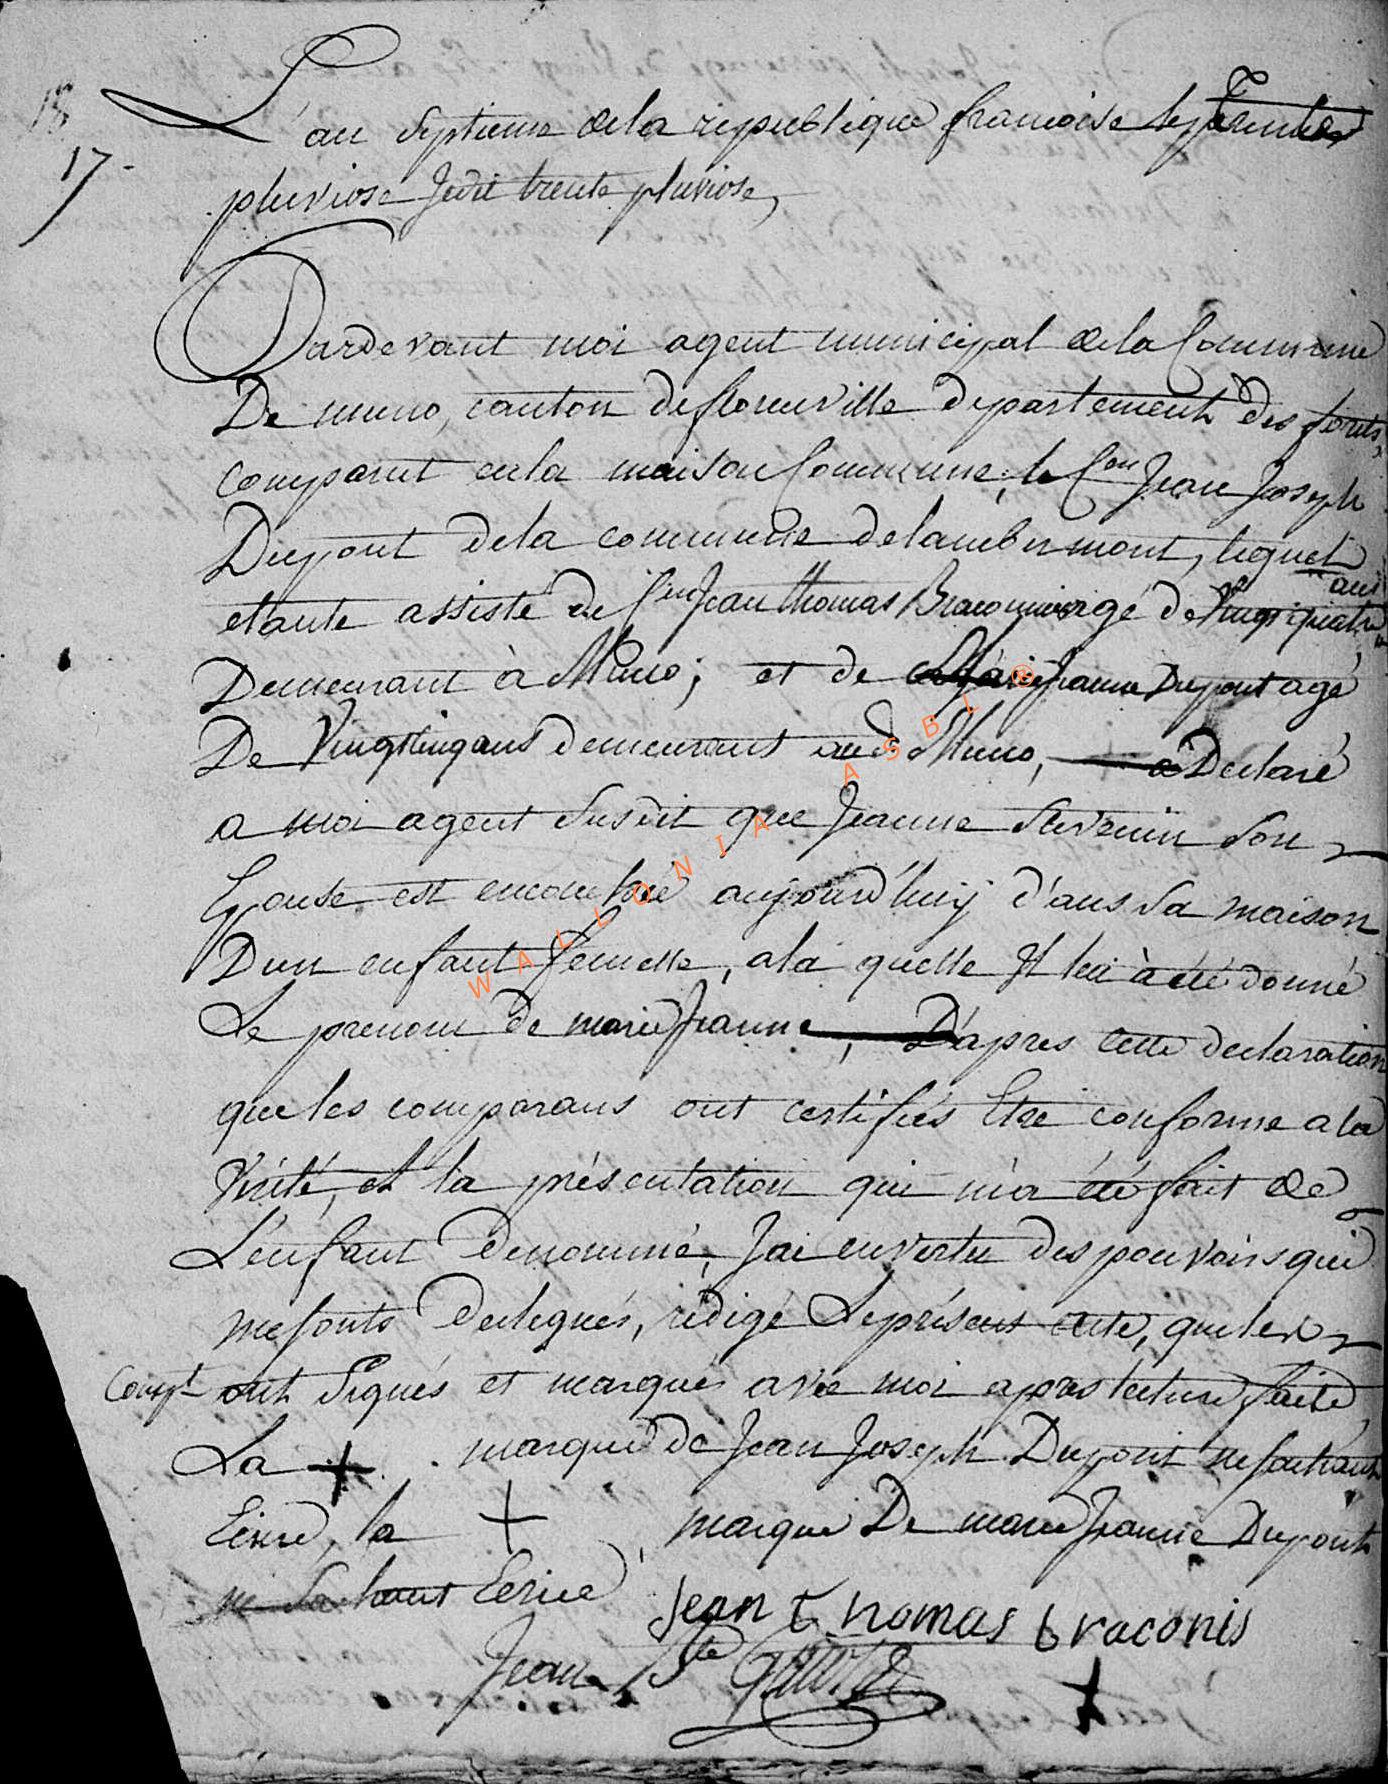 18
17.
L'an Septieme de la republique francoise le
pluviose Jedit trente pluviose,
Pardevant moi agent municipal de la Commune
De muno, canton de florenville departement des forets,
comparut en la maison Commune, le Cen Jean Joseph
Dupont de la commune de lambermont, lequel
etante assisté de Cen Jean thomas Braconnier agé de Vingt quatre ans
Demeurant à Muno; et de Marie Jeanne Dupont agé
De Vingt Cinq ans demeurant aud. Muno, a Declaré
a moi agent Susdit que Jeanne Stevenin Son
Epouse est encouchée aujourd'huÿ d'ans Sa maison
Dun enfant femelle, a la quelle Il lui à été donné
Le prenom de marie Jeanne, D'apres cette declaration
que les comparans ont certifiés Etre conforme a la
Vérité, et la présentation qui m'a été fait de
L'enfant denommé, Jai en vertu des pouvoirs qui
me sonts Delegués, rédigé Le présent acte, que les
Compt ont Signés et marqués avec moi apres lecture faite,
La + marque de Jean Joseph Dupont ne sachant
Ecrire, la + marque De marie Jeanne Dupont
ne Sachant Ecrire
jean thomas braconis
Jean Bte
WALLONIA ASBL ®